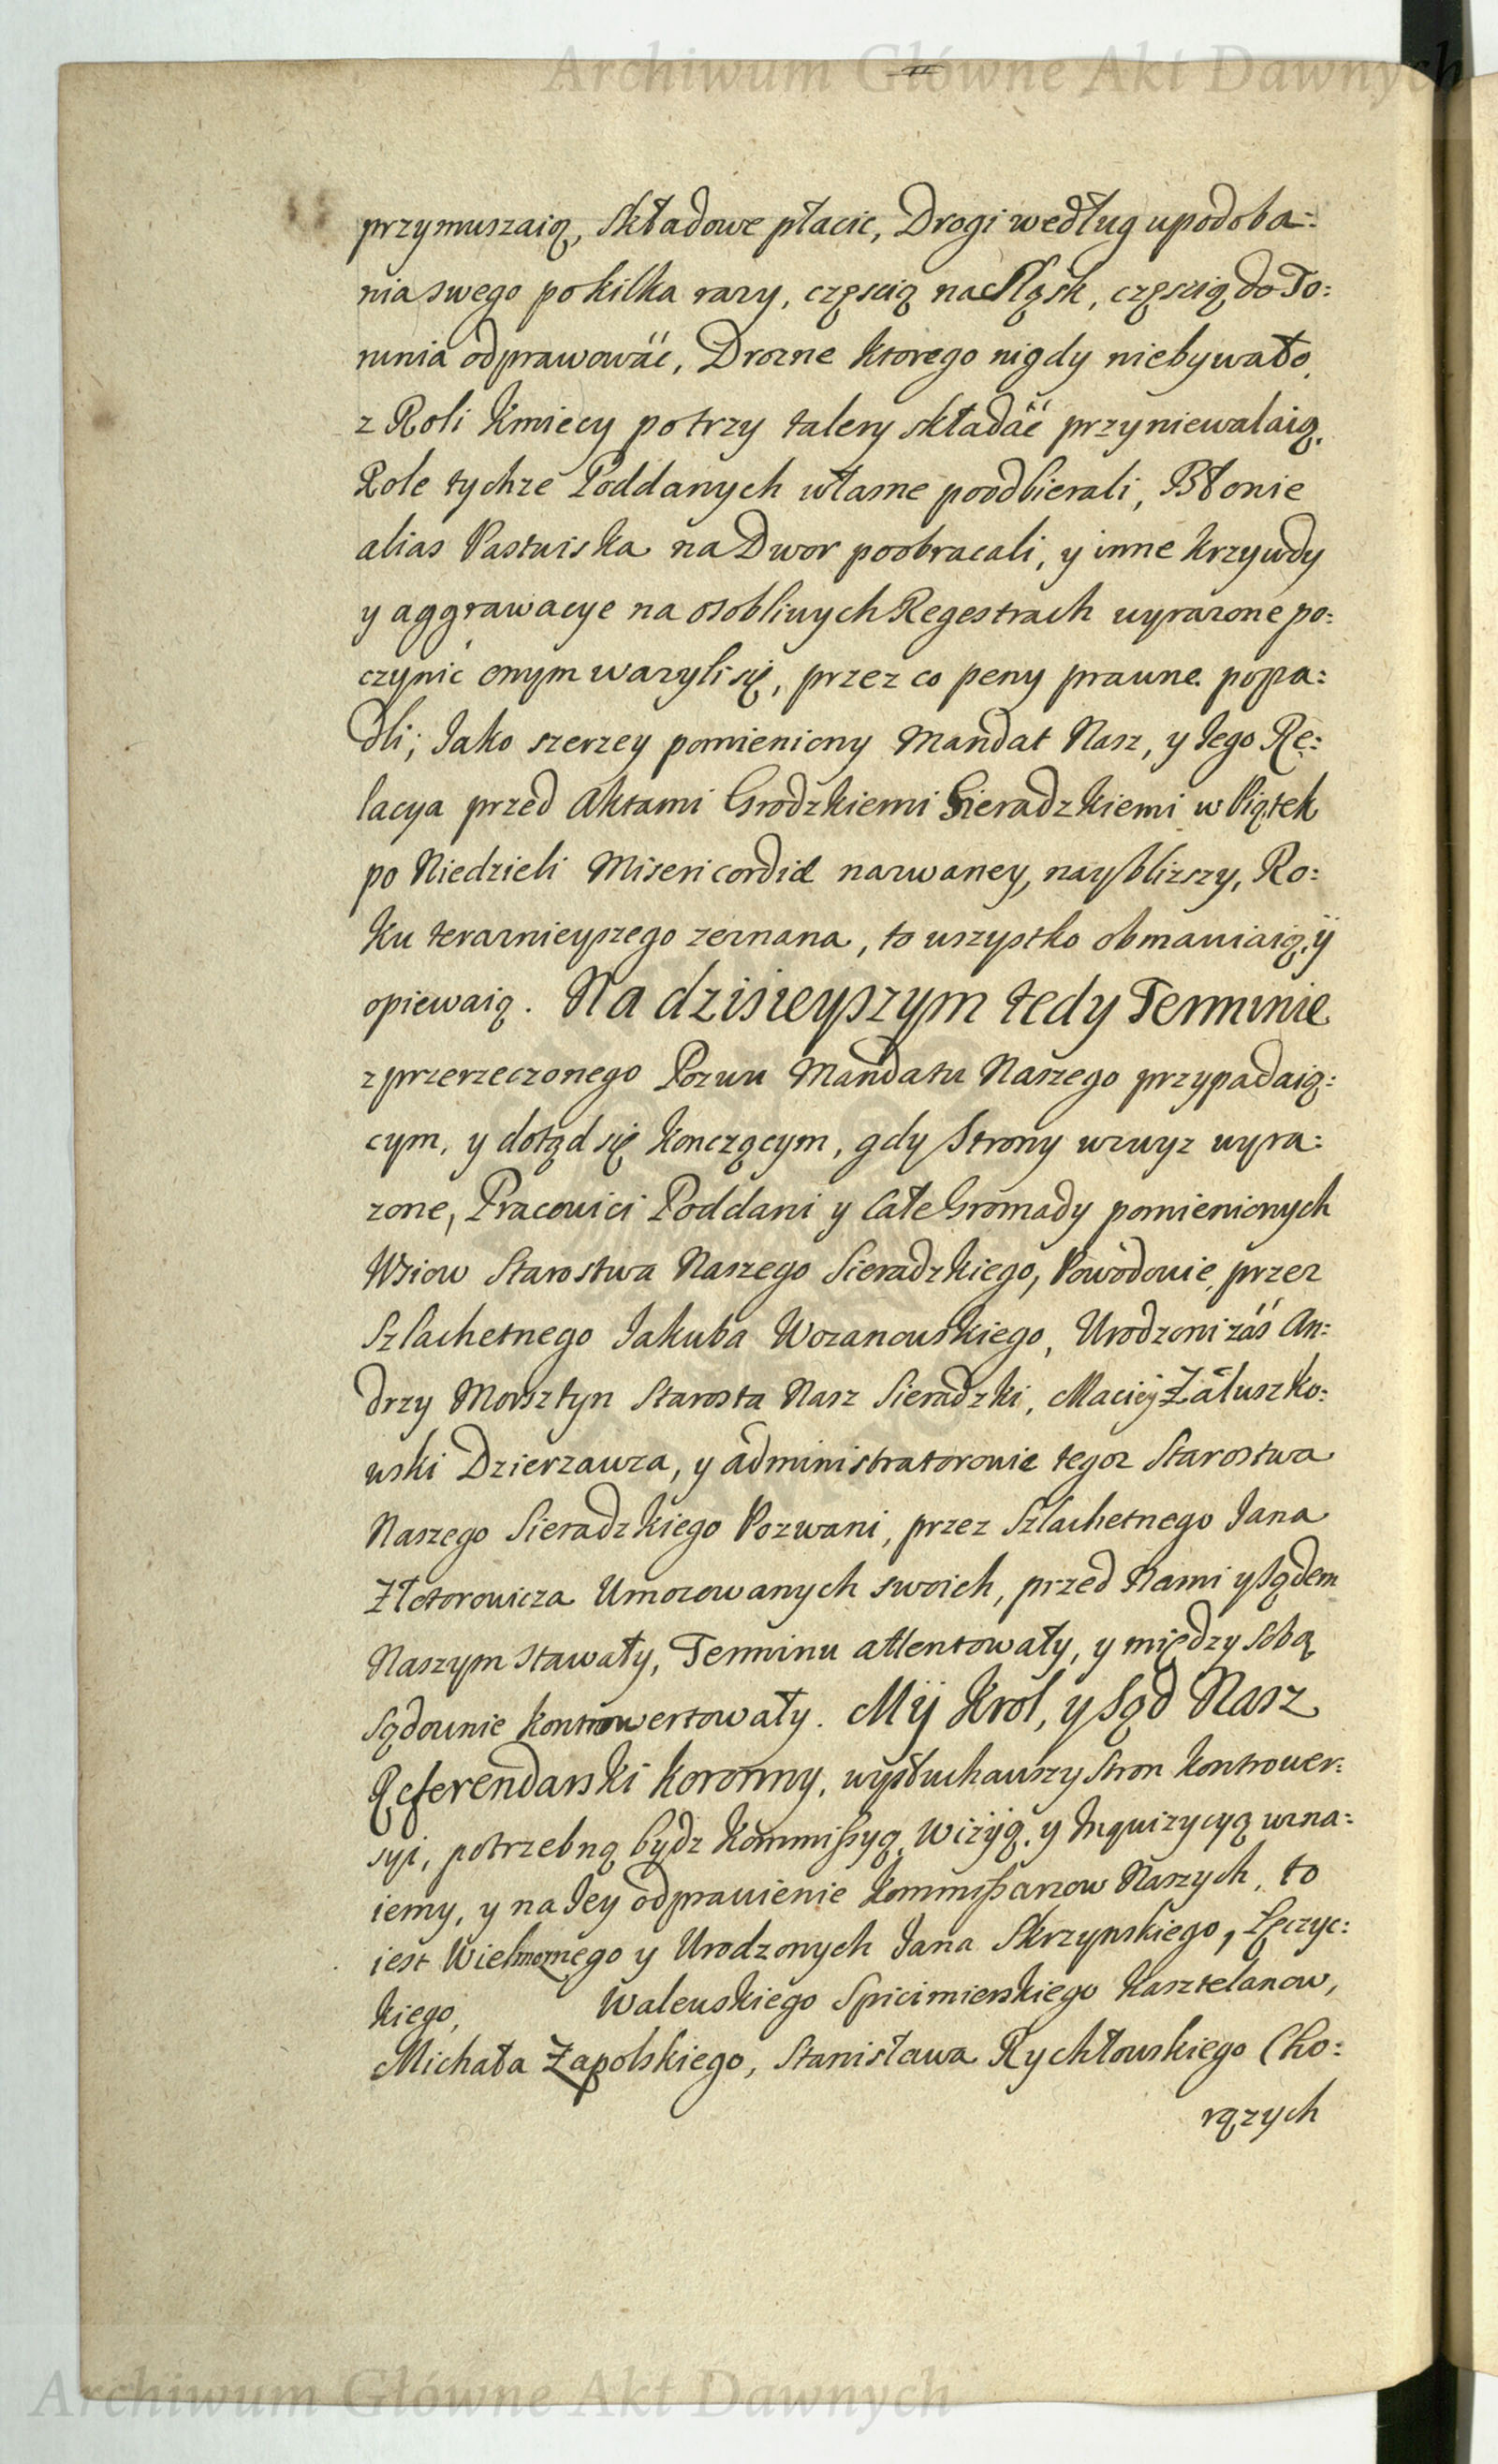 Archiwum Główne Akt Dawnych
przymuszaią, składowe płacic, Drogi według upodoba=
nia swego po kilka razy, częscią na Sląsk, częscią do To=
runia odprawowáć, Drozne ktorego nigdy niebywało
z Roli Kmiecy po trzy talery składáć przyniewalaią.
Role tychze Poddanych własne poodbierali, Błonie
alias Pastwiska na Dwor poobracali, y inne krzywdy
y aggrawacye na osobliwych Regestrach wyrazone po=
czynić onym wazyli się, przez co peny prawne popa=
dli; Jako szerzey pomieniony Mandat Nasz, y Jego Re=
lacya przed Aktami Grodzkiemi Sieradzkiemi w Piątek
po Niedzieli Misericordiæ nazwaney, naybliższy, Ro=
ku teraznieyszego zeznana, to wszystko obmawiaią, ÿ
opiewaią. Na dzisieyszym tedy Terminie
z przerzeczonego Pozwu Mandatu Naszego przypadaią=
cym, y dotąd się konczącym, gdy Strony wzwyz wyra=
zone, Pracowici Poddani y Całe Gromady pomienionych
Wsiow Starostwa Naszego Sieradzkiego, Powodowie, przez
Szlachetnego Jakuba Wozanowskiego, Urodzeni záś An=
drzy Morsztyn Starosta Nasz Sieradzki, Maciey Załuszko=
wski Dzierzawza, y administratorowie tegoz Starostwa
Naszego Sieradzkiego Pozwani, przez Szlachetnego Jana
Złotorowicza Umocowanych swoich, przed Nami y Sądem
Naszym stawały, Terminu attentowały, y między sobą
sądownie kontrowertowały. Mÿ Krol, y Sąd Nasz
Referendarski Koronny, wysłuchawszy stron kontrower=
syi, potrzebną bydz Kommissyą, Wizÿą, y Inquizycyą uzna=
iemy, y na Jey odprawienie Kommissarzow Naszych, to
iest Wielmoznego y Urodzonych Jana Skrzynskiego, Łęczyc=
kiego, Walewskiego Spicimierskiego Kasztelanow,
Michała Zapolskiego, Stanisława Rychłowskiego Cho=
rązych
Archiwum Główne Akt Dawnych